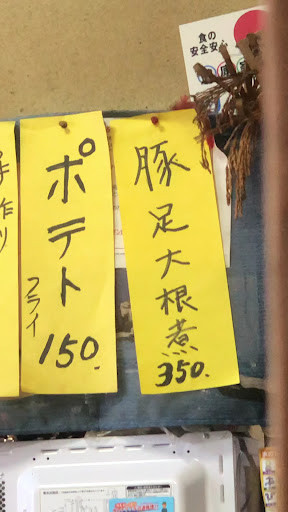 食の
安全安心
豚足大根煮
350.
ポテト
フライ
150.
手作り